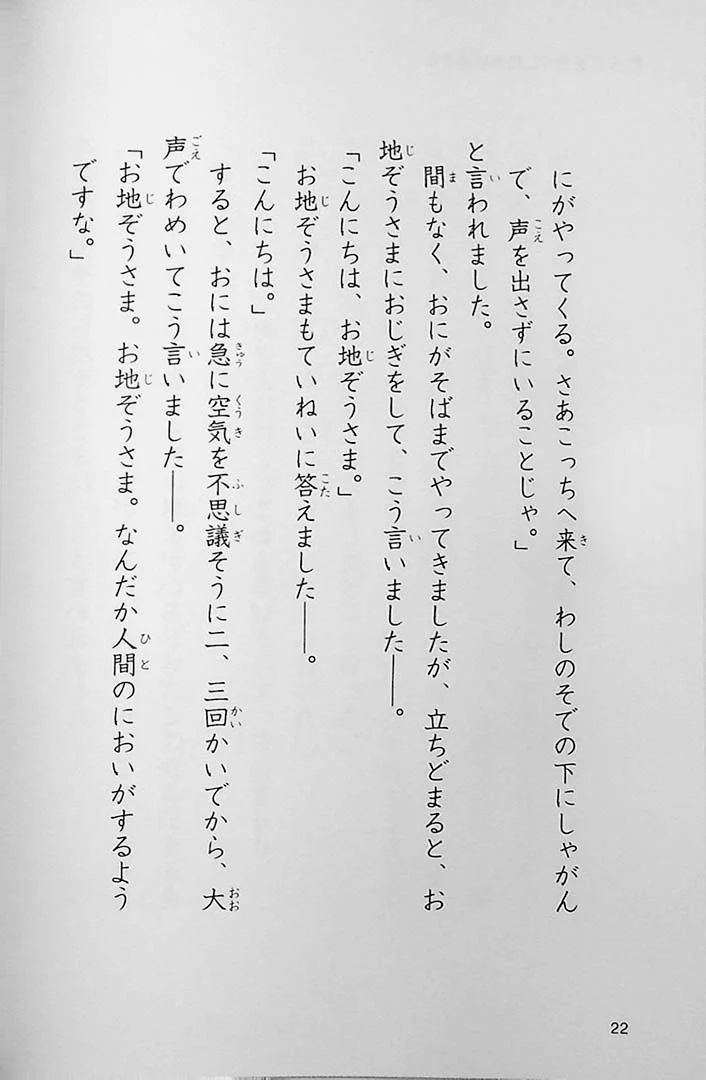 にがやってくる。さあこっちへ来て、わしのそでの下にしゃがん
で、声を出さずにいることじゃ。」
と言われました。
間もなく、おにがそばまでやってきましたが、立ちどまると、お
地ぞうさまにおじぎをして、こう言いました――。
「こんにちは、お地ぞうさま。」
お地ぞうさまもていねいに答えました――。
「こんにちは。」
すると、おには急に空気を不思議そうに二、三回かいでから、大
声でわめいてこう言いました――。
「お地ぞうさま。お地ぞうさま。なんだか人間のにおいがするよう
ですな。」
22